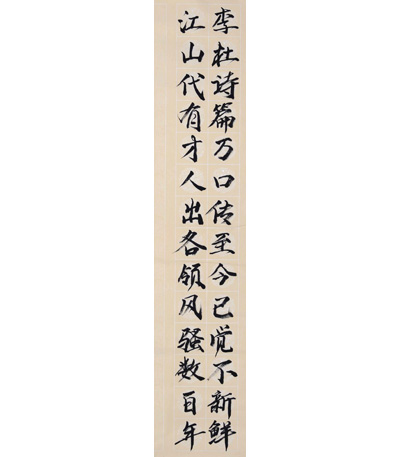 李杜诗篇万口传至今已觉不新鲜
江山代有才人出各领风骚数百年